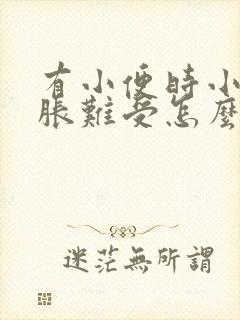 有小便時小
脹難受怎麼
迷茫無所謂